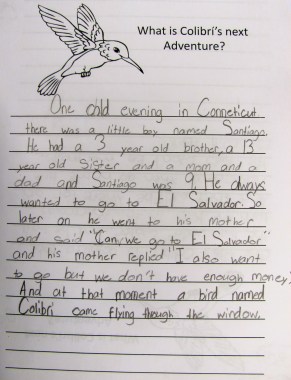 What is Colibrí's next
Adventure?
One cold evening in Conneticut
there was a little boy named Santiago.
He had a 3 year old brother, a 13
year old sister and a mom and a
dad and Santiago was 9. He always
wanted to go to El Salvador. So
later on he went to his mother
and said "Can we go to El Salvador"
and his mother replied "I also want
to go but we don't have enough money"
And at that moment a bird named
Colibrí came flying through the window.